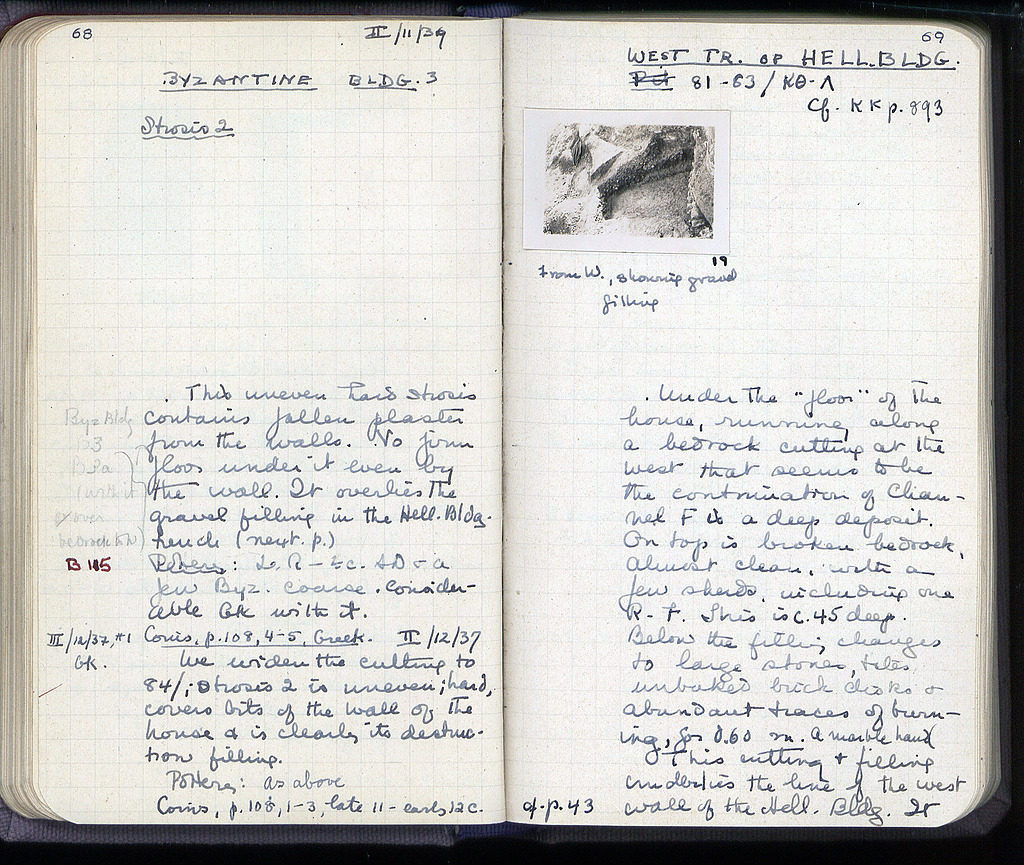 68
II/11/39
BYZANTINE BLDG. 3
Strosis 2
. This uneven hard strosis
contains fallen plaster
from the walls. No firm
floor under it even by
the wall. It overlies the
gravel filling in the Hell. Bldg.
trench (next p.)
Byz Bldg
over
bedrock
B 115
Pottery: L. R - c. AD & a
few Byz. coarse. Consider-
able Gk with it.
III/12/37, #1
GK.
Coins, p. 108, 4-5, Greek. II/12/37
We widen the cutting to
84/; Strosis 2 is uneven; hard,
covers bits of the wall of the
house & is clearly its destruc-
tion filling.
Pottery: as above
Coins, p. 108, 1-3, late 11 - early 12 c.
69
WEST TR. OF HELL. BLDG.
81-63/ΚΘ-Λ
Cf. KK p. 893
19
From W., showing gravel
filling
. Under the "floor" of the
house, running along
a bedrock cutting at the
west that seems to be
the continuation of Chan-
nel F is a deep deposit.
On top is broken bedrock,
almost clean, with a
few sherds, including one
R. F. This is c. 45 deep.
Below the filling changes
to large stones, tiles
unbaked brick disks &
abundant traces of burn-
ing, for 0.60 m. A marble hand
This cutting & filling
underlies the line of the west
cf. p. 43
wall of the Hell. Bldg. It